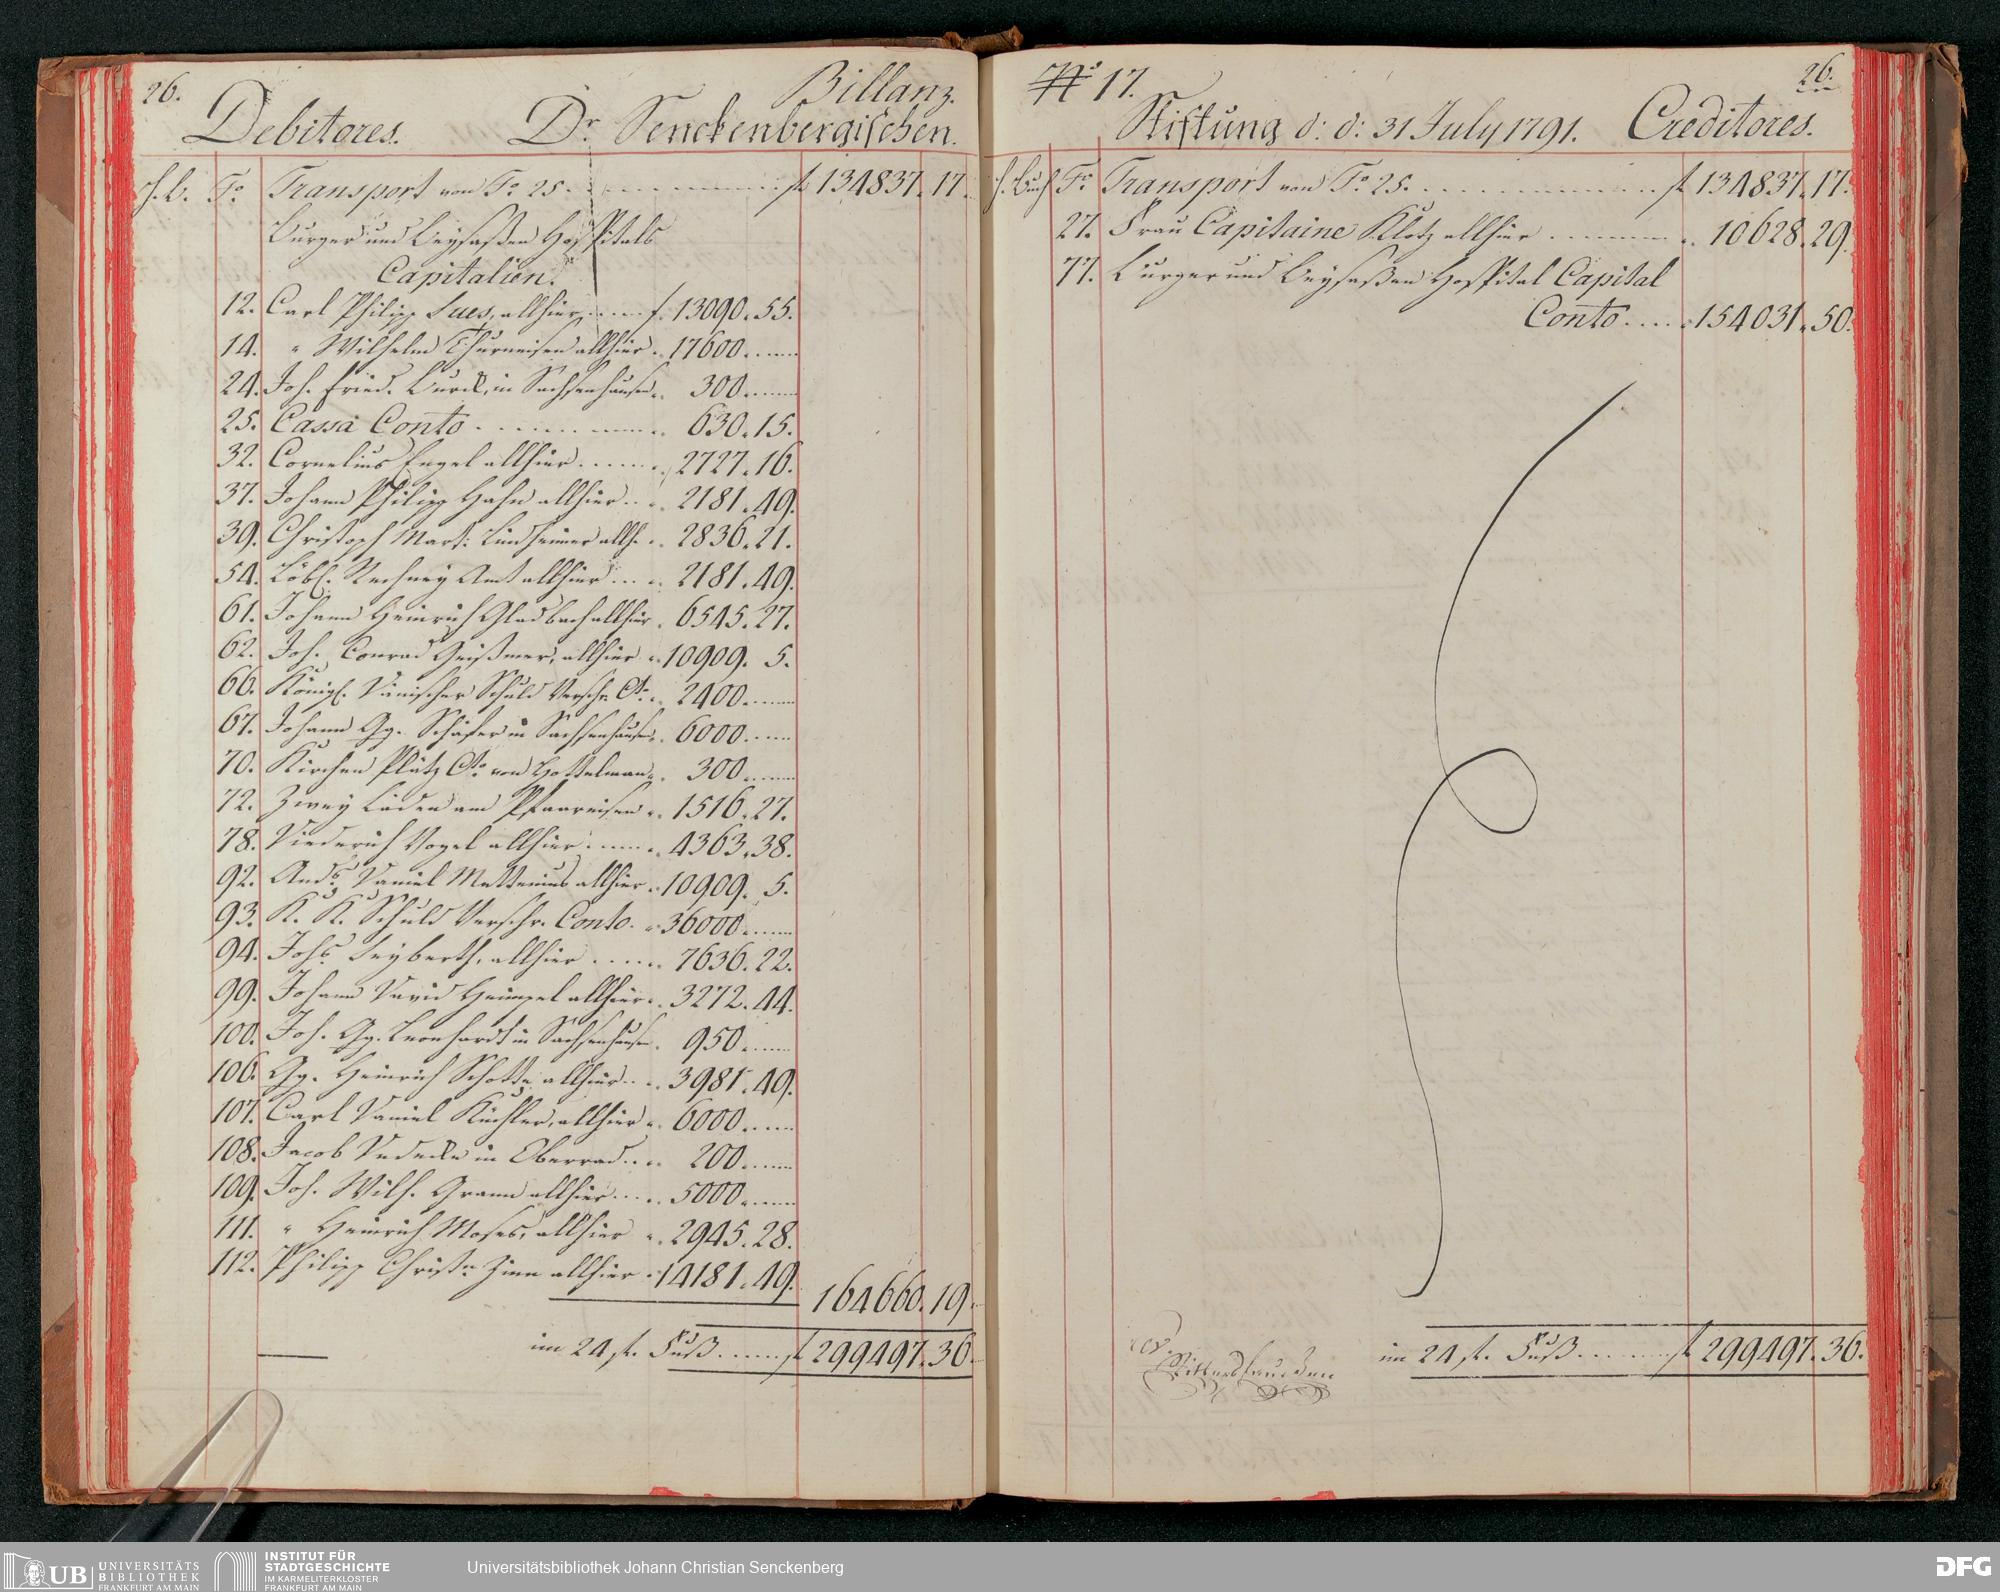 26.
Billanz.
Debitores. Dr. Senckenbergischen.
H. b. Fo. Transport von Fo. 25. f 134837.17.
Burger und Beysaßen Hospitals
Capitalien.
12. Carl Philipp Lucs, allhier f. 13090.55.
14. " Wilhelm Thurneisen allhier 17600.
24. Joh. Fried. Burck, in Sachsenhausen 300.
25. Cassa Conto 630.15.
32. Cornelius Engel allhier 2727.16.
37. Johann Philipp Hahn allhier 2181.49.
39. Christoph Mart: Lindheimer allh. 2836.21.
54. Löbl. Rechney Amt allhier 2181.49.
61. Johann Heinrich Gladbach allhier 6545.27.
62. Joh. Conrad Geißmer, allhier 10909. 5.
66. Königl. Dänischer Schuld Verschr. Cto. 2400.
67. Johann Gg. Schäfer in Sachsenhausen 6000.
70. Kirchen Plätz Cto. von 300.
72. Zwey Läden am Pfarreisen 1516.27.
78. Diederich Vogel allhier 4363.38.
92. Ands. Daniel Mettenius allhier 10909. 5.
93. K. K. Schuld Verschr. Conto. 36000.
94. Johs. Seyberth, allhier 7636.22.
99. Johann David Heimpel allhier 3272.44.
100. Joh. Gg. Leonhardt in Sachsenhausen 950.
106. Gg. Heinrich Schott allhier 3981.49.
107. Carl Daniel Küchler, allhier 6000.
108. Jacob in Oberrad 200.
109. Joh. Wilh. Gramm allhier 5000.
111. " Heinrich Moses, allhier 2945.28.
112. Philipp Christn. Zinn allhier 14181.49.
164660.19.
im 24 f. Fuß f 299497.36.
No. 17.
26.
Stiftung d: d: 31 July 1791. Creditores.
H. Buch Fo. Transport von Fo. 25. f 134837.17.
27. Frau Capitaine Klotz allhier 10628.29.
77. Burger und Beysaßen Hospital Capital
Conto 154031.50.
im 24 f. Fuß f 299497.36.
UB UNIVERSITÄTS
BIBLIOTHEK
FRANKFURT AM MAIN
INSTITUT FÜR
STADTGESCHICHTE
IM KARMELITERKLOSTER
FRANKFURT AM MAIN
Universitätsbibliothek Johann Christian Senckenberg
DFG